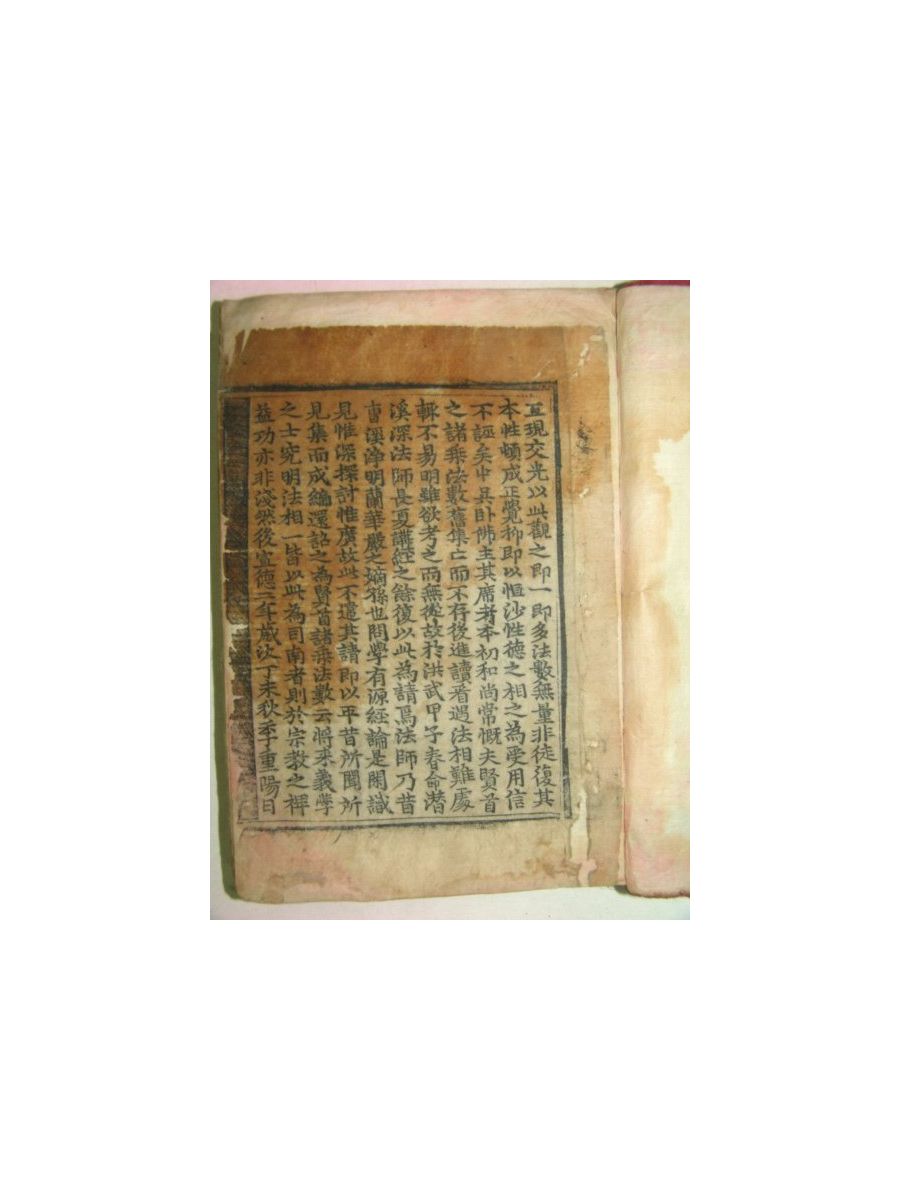 互現交光以此觀之即一即多法數無量非徒復其
本性頓成正覺抑即以恒沙性德之相之為受用信
不誣矣中吳臥佛主其席者本初和尚常慨夫賢首
之諸乘法數舊集亡而不存後進讀看遇法相難處
輒不易明雖欲考之而無從故於洪武甲子春命潛
溪深法師長夏講經之餘復以此為請焉法師乃昔
曹溪淨明蘭華嚴之嫡孫也問學有源經論是閑識
見惟深探討惟廣故此不違其請即以平昔所聞所
見集而成編還詺之為賢首諸乘法數云將來義學
之士究明法相一皆以此為司南者則於宗教之裨
益功亦非淺然後宣德二年歲次丁未秋季重陽日